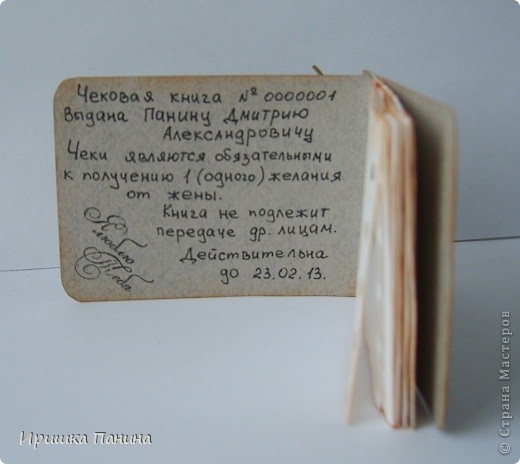 Чековая книга № 0000001
Выдана Панину Дмитрию
Александровичу
Чеки являются обязательными
к получению 1 (одного) желания
от жены.
Книга не подлежит
передаче др. лицам.
Действительна
до 23.02.13.
Я
люблю
Тебя
Иришка Панина
© Страна Мастеров